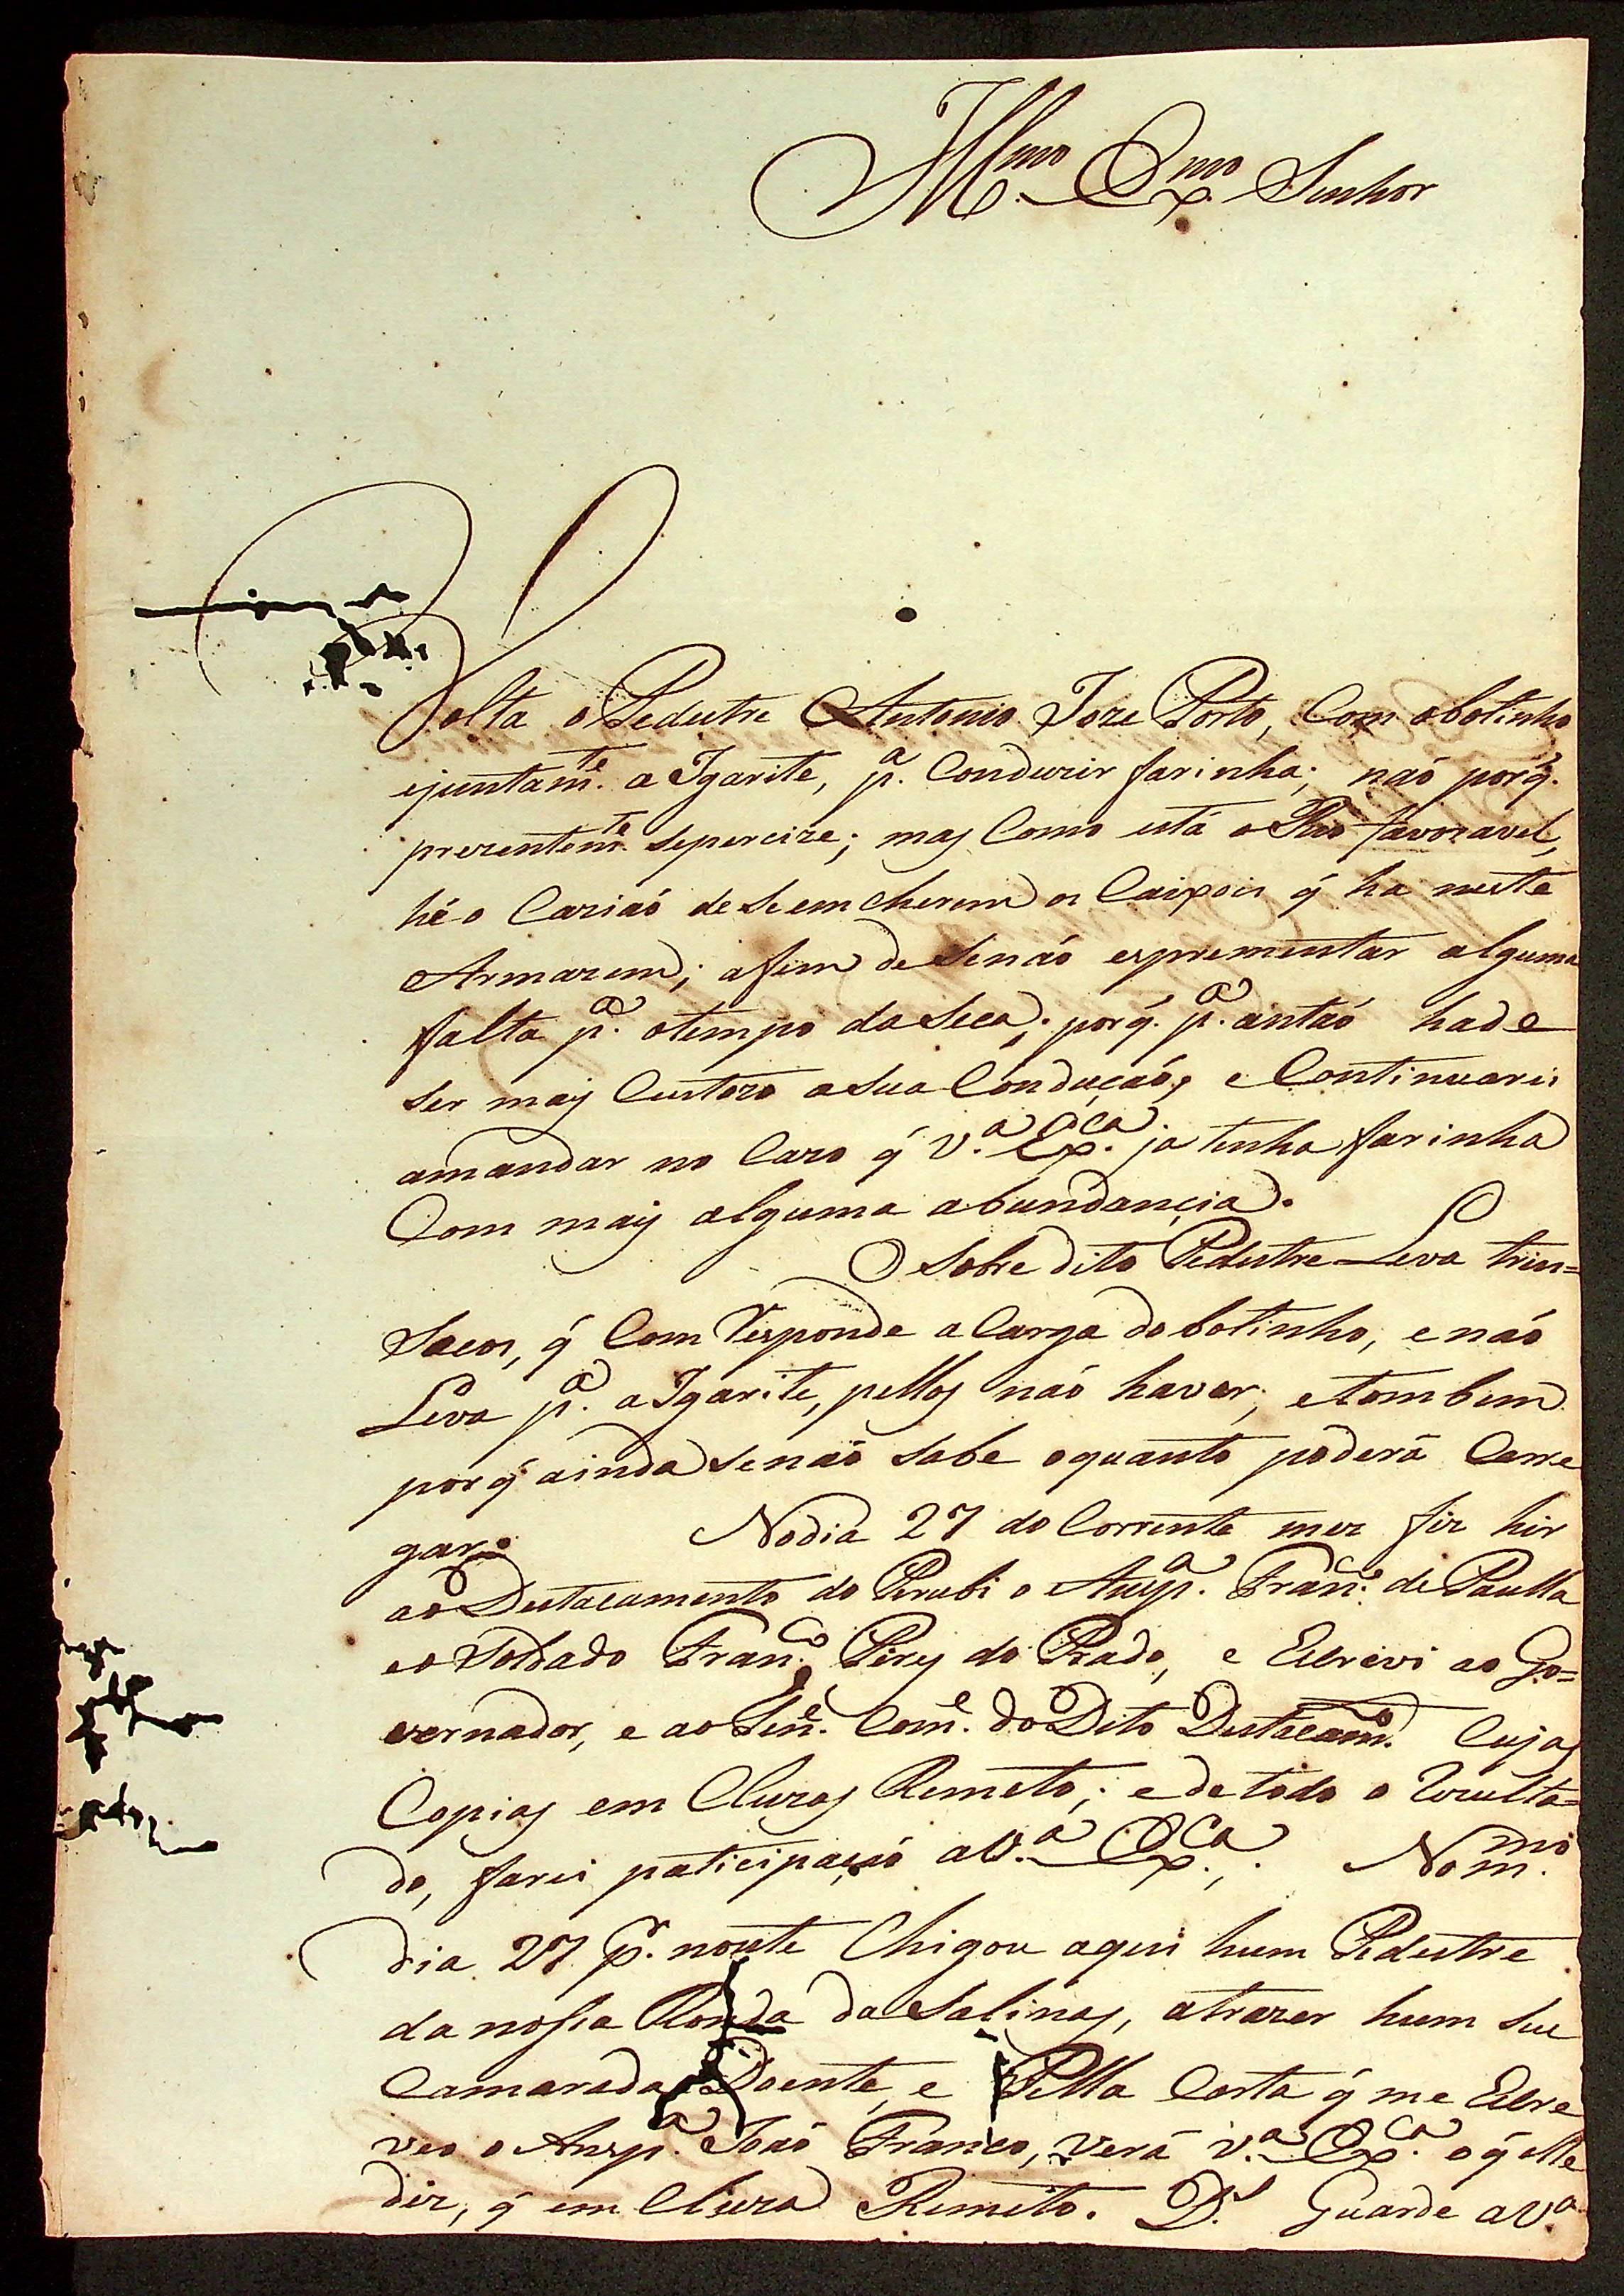 Illmo. Exmo. Senhor
Volta o Pedestre Antonio Joze Porto, Com obotinho
ejuntamte. a Igarite, pa. Conduzir farinha; naõ porq̃.
prezentemte. sepercize; mas Como está o Rio favoravel,
hé o Caziaõ de Se emcherem os Caixois q̃ ha neste
Armazem; afim de Senaõ exprementar alguma
falta pa. otempo da Seca; porq̃. pa. antaõ hade
ser mais Custozo a sua Conduçaõ, e Continuarei
amandar no Cazo q̃ V.a Exca. ja tenha farinha
Com mais alguma abundancia.
O Sobre dito Pedestre Leva trin=
Sacos, q̃ Com Responde a Carga do botinho, e naõ
Leva pa. a Igarite, pellos naõ haver, etombem
por q̃ ainda senaõ sabe oquanto poderá Carre
gar. Nodia 27 do Corrente mez fiz hir
ao Destacamento do Perubi o Anspa. Franco. de Paulla
eo Soldado Franco. Pires do Prado, e Escrevi ao Go=
vernador, e ao Tene. Come. do Dito Destacamo. Cujas
Copias em Cluzas Remeto; e de todo o Rezulta=
do, farei paticipaçaõ a V.a Exca.; No mmo.
dia 27 pr. noute Chigou aqui hum Pedestre
da nossa Ronda da Salinas, atrazer hum Seu
Camarada Doente, e Pella Carta q̃ me Escre
veo o Anspa. Joaõ Franco, verá V.a Exca. o q̃ elle
diz, q̃ em Cluza Remeto. Ds. Guarde a V.a